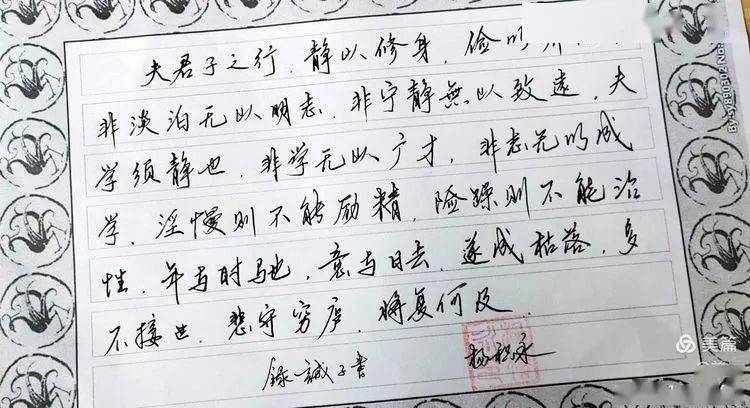 夫君子之行，静以修身，俭以
非淡泊无以明志，非宁静無以致远，夫
学须静也，非学无以广才，非志无以成
学，淫慢则不能励精，险躁则不能治
性，年与时马也，意与日去，遂成枯落，多
不接世，悲守穷庐，将复何及
錄誡子書
美篇